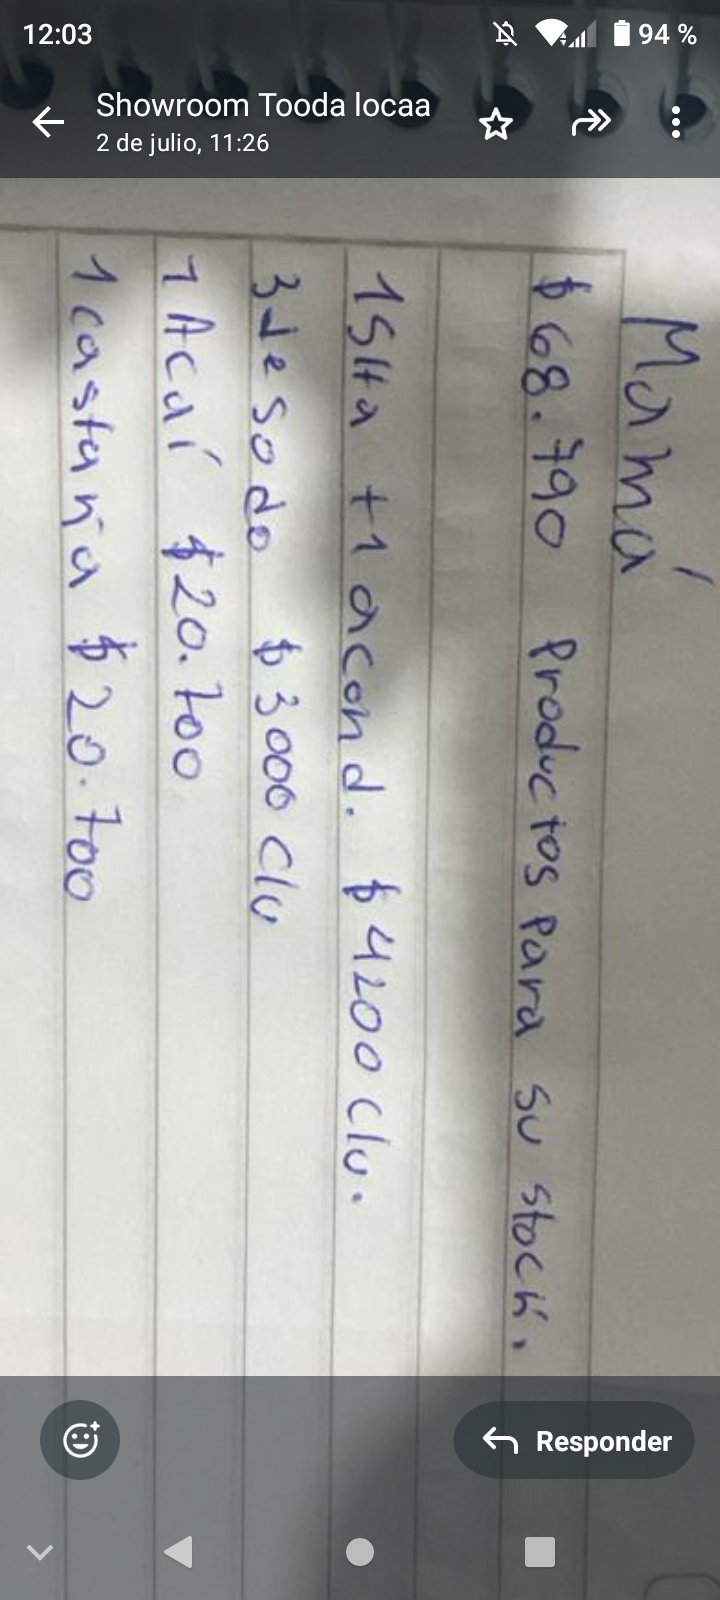 12:03
94 %
Showroom Tooda locaa
2 de julio, 11:26
Mamá
$68.790 Productos para su stock.
1 Slta + 1 acond. $4200 c/u.
3 desodo $3000 c/u
1 Acaí $20.700
1 castaña $20.700
Responder